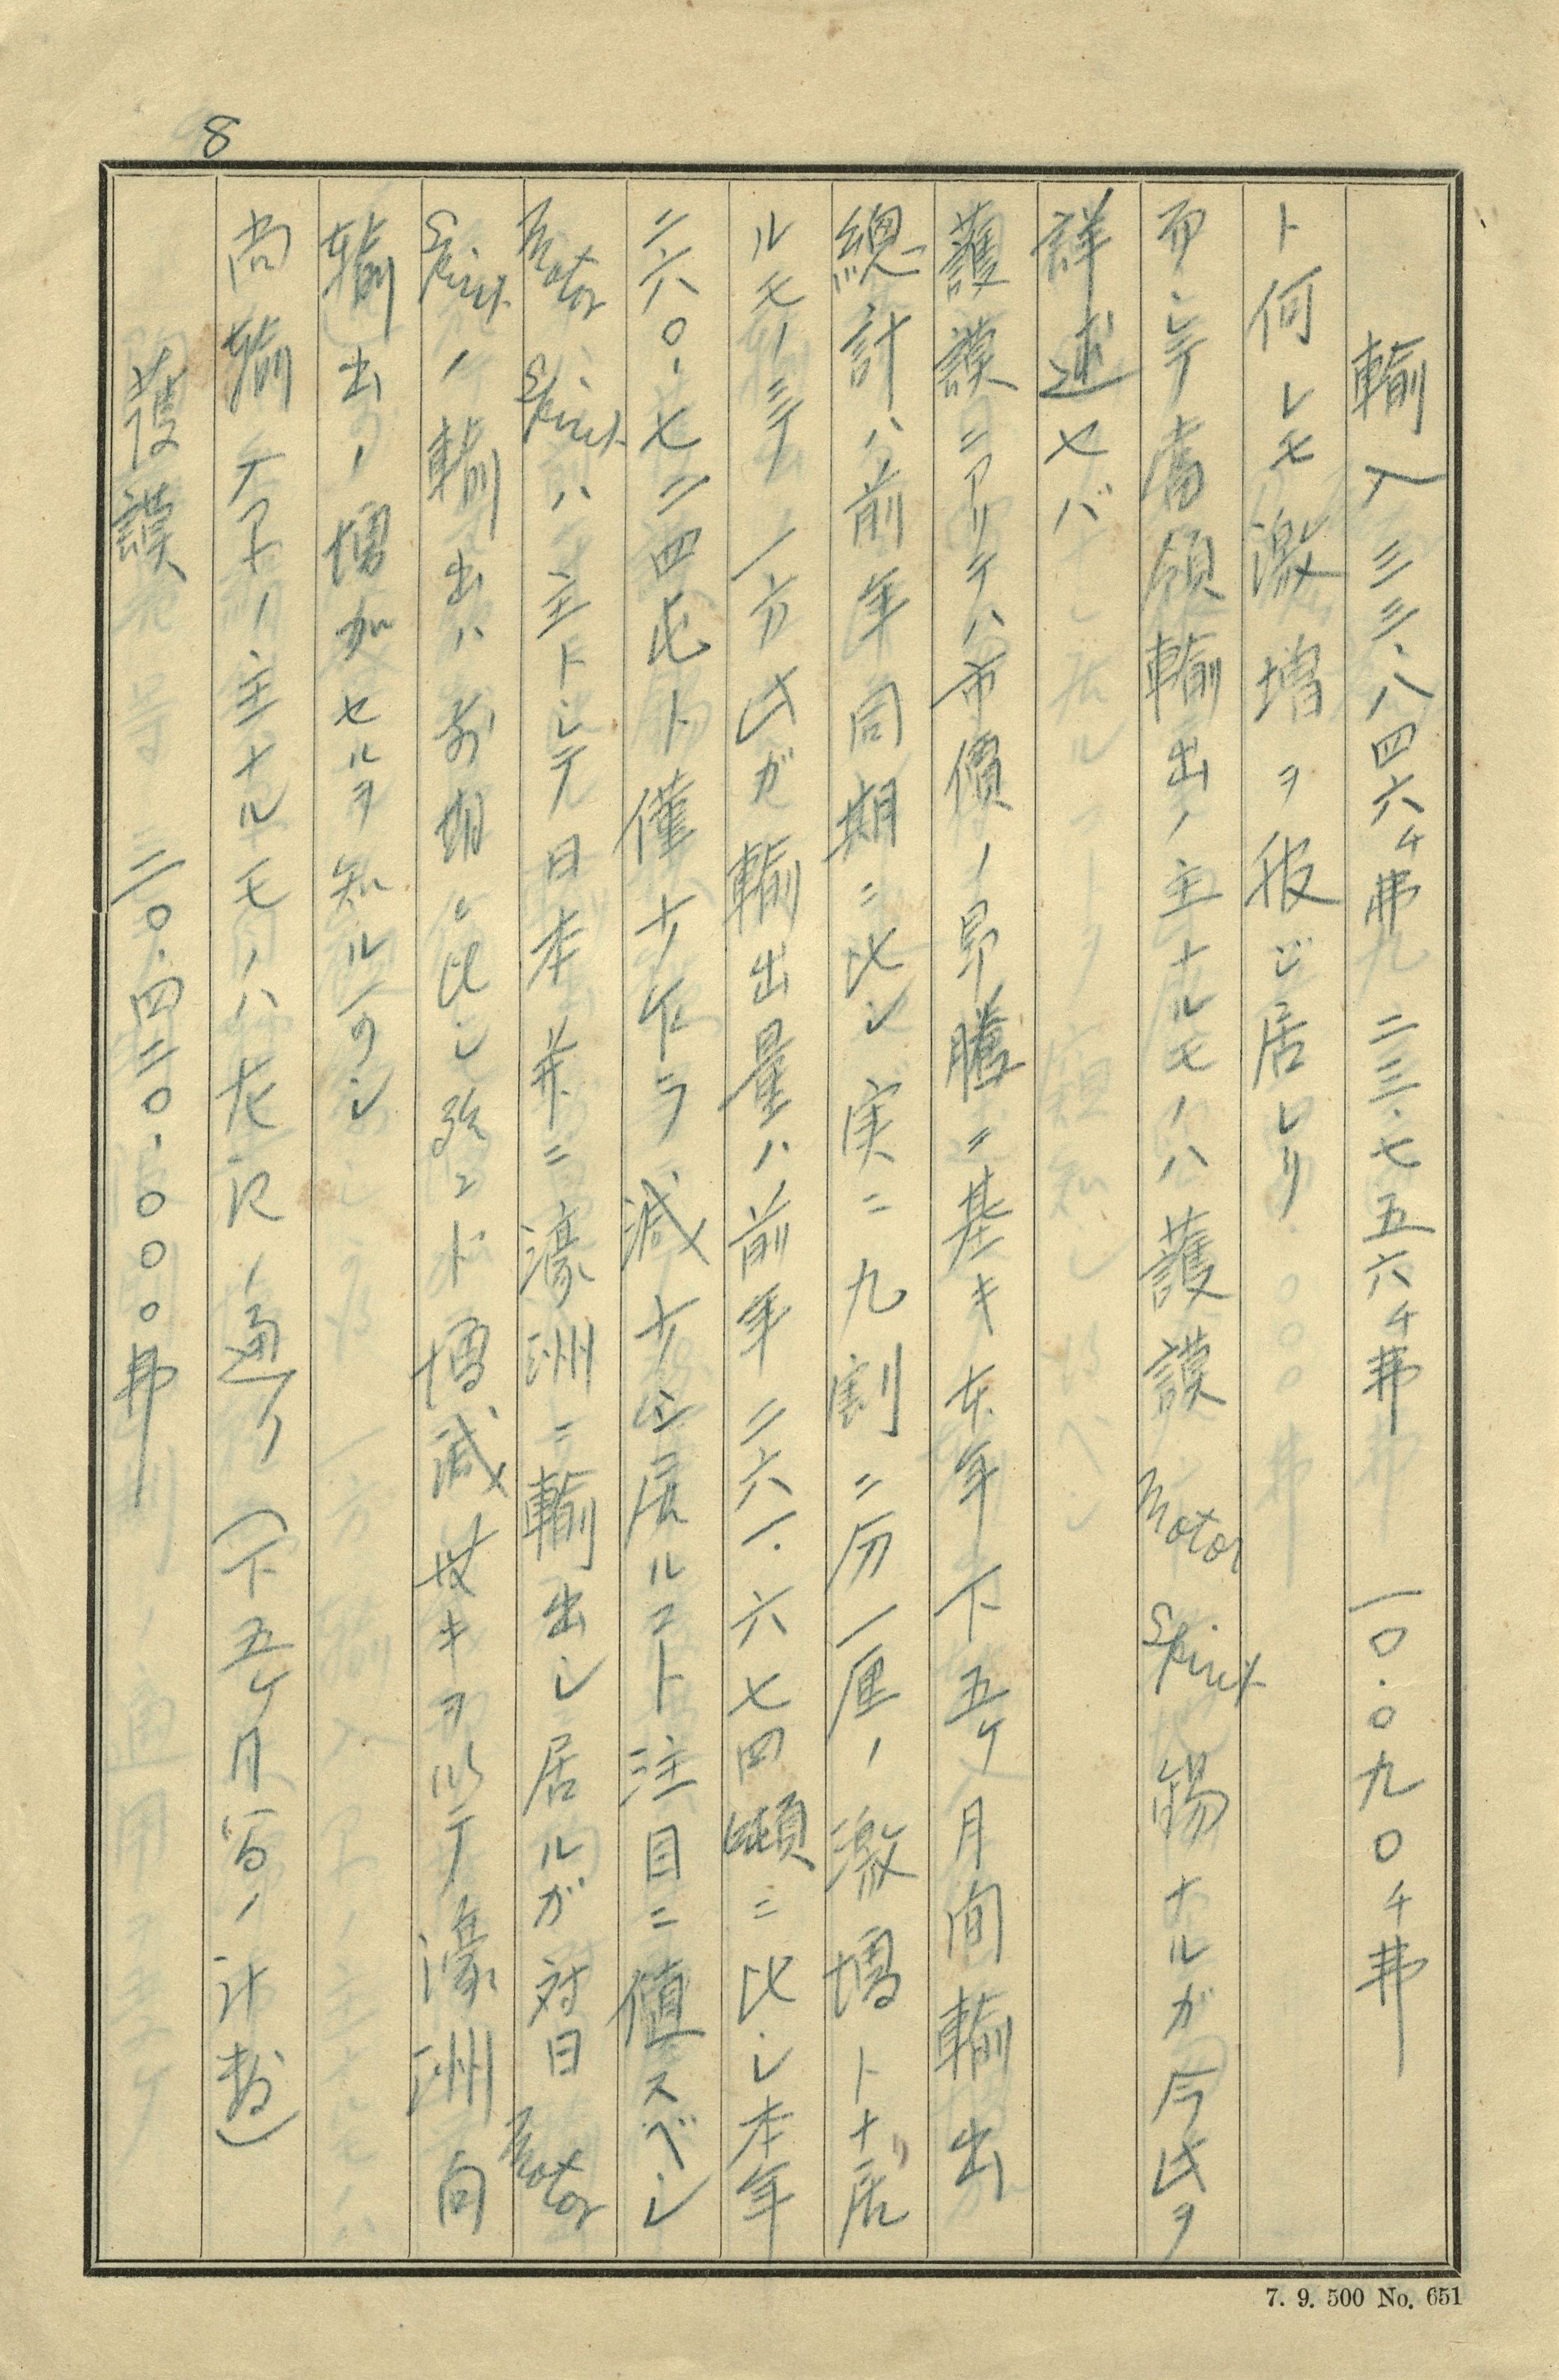 8
輸入 三三、八四六千弗 二三、七五六千弗 一〇、〇九〇千弗
ト何レモ激増ヲ報ジ居レリ
而シテ當領輸出ノ主ナルモノハ護謨 Motor Spirit 錫ナルガ今此ヲ
詳述セバ
護謨ニアリテハ市價ノ昂騰ニ基キ本年下五ケ月間輸出
總計ハ前年同期ニ比シ実ニ九割二分一厘ノ激増トナリ居
ルモノニテ一方此ガ輸出量ハ前年二六一、六七四噸ニ比シ本年
二六〇、七二四屯ト僅少乍ラ減少シ居ルコト注目ニ値スベシ
Motor Spiritハ主トシテ日本並ニ濠洲ニ輸出シ居ルガ対日Motor
Spiritノ輸出ハ前期ニ比シ殆ンド増減ナキヲ以テ濠洲向
輸出ノ増加セルヲ知ルヲウシ
尚輸入ノ主ナルモノハ左記ノ通リ（下五ケ月間ノ計数）
護謨 三〇、四二〇、〇〇〇弗
7. 9. 500 No. 651